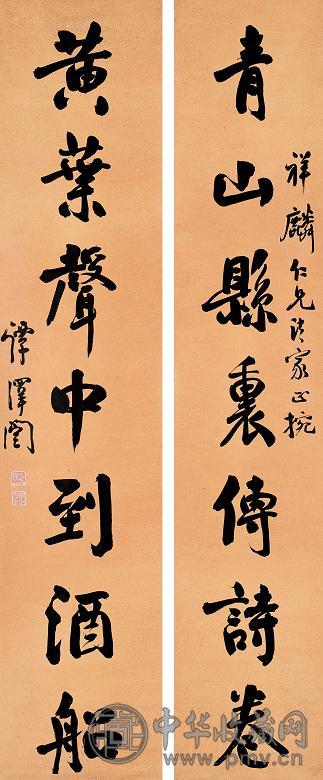 青山縣裏傳詩卷
祥麟仁兄法家正捥
黃葉聲中到酒船
譚澤闓
中华收藏网
www.pmv.cn